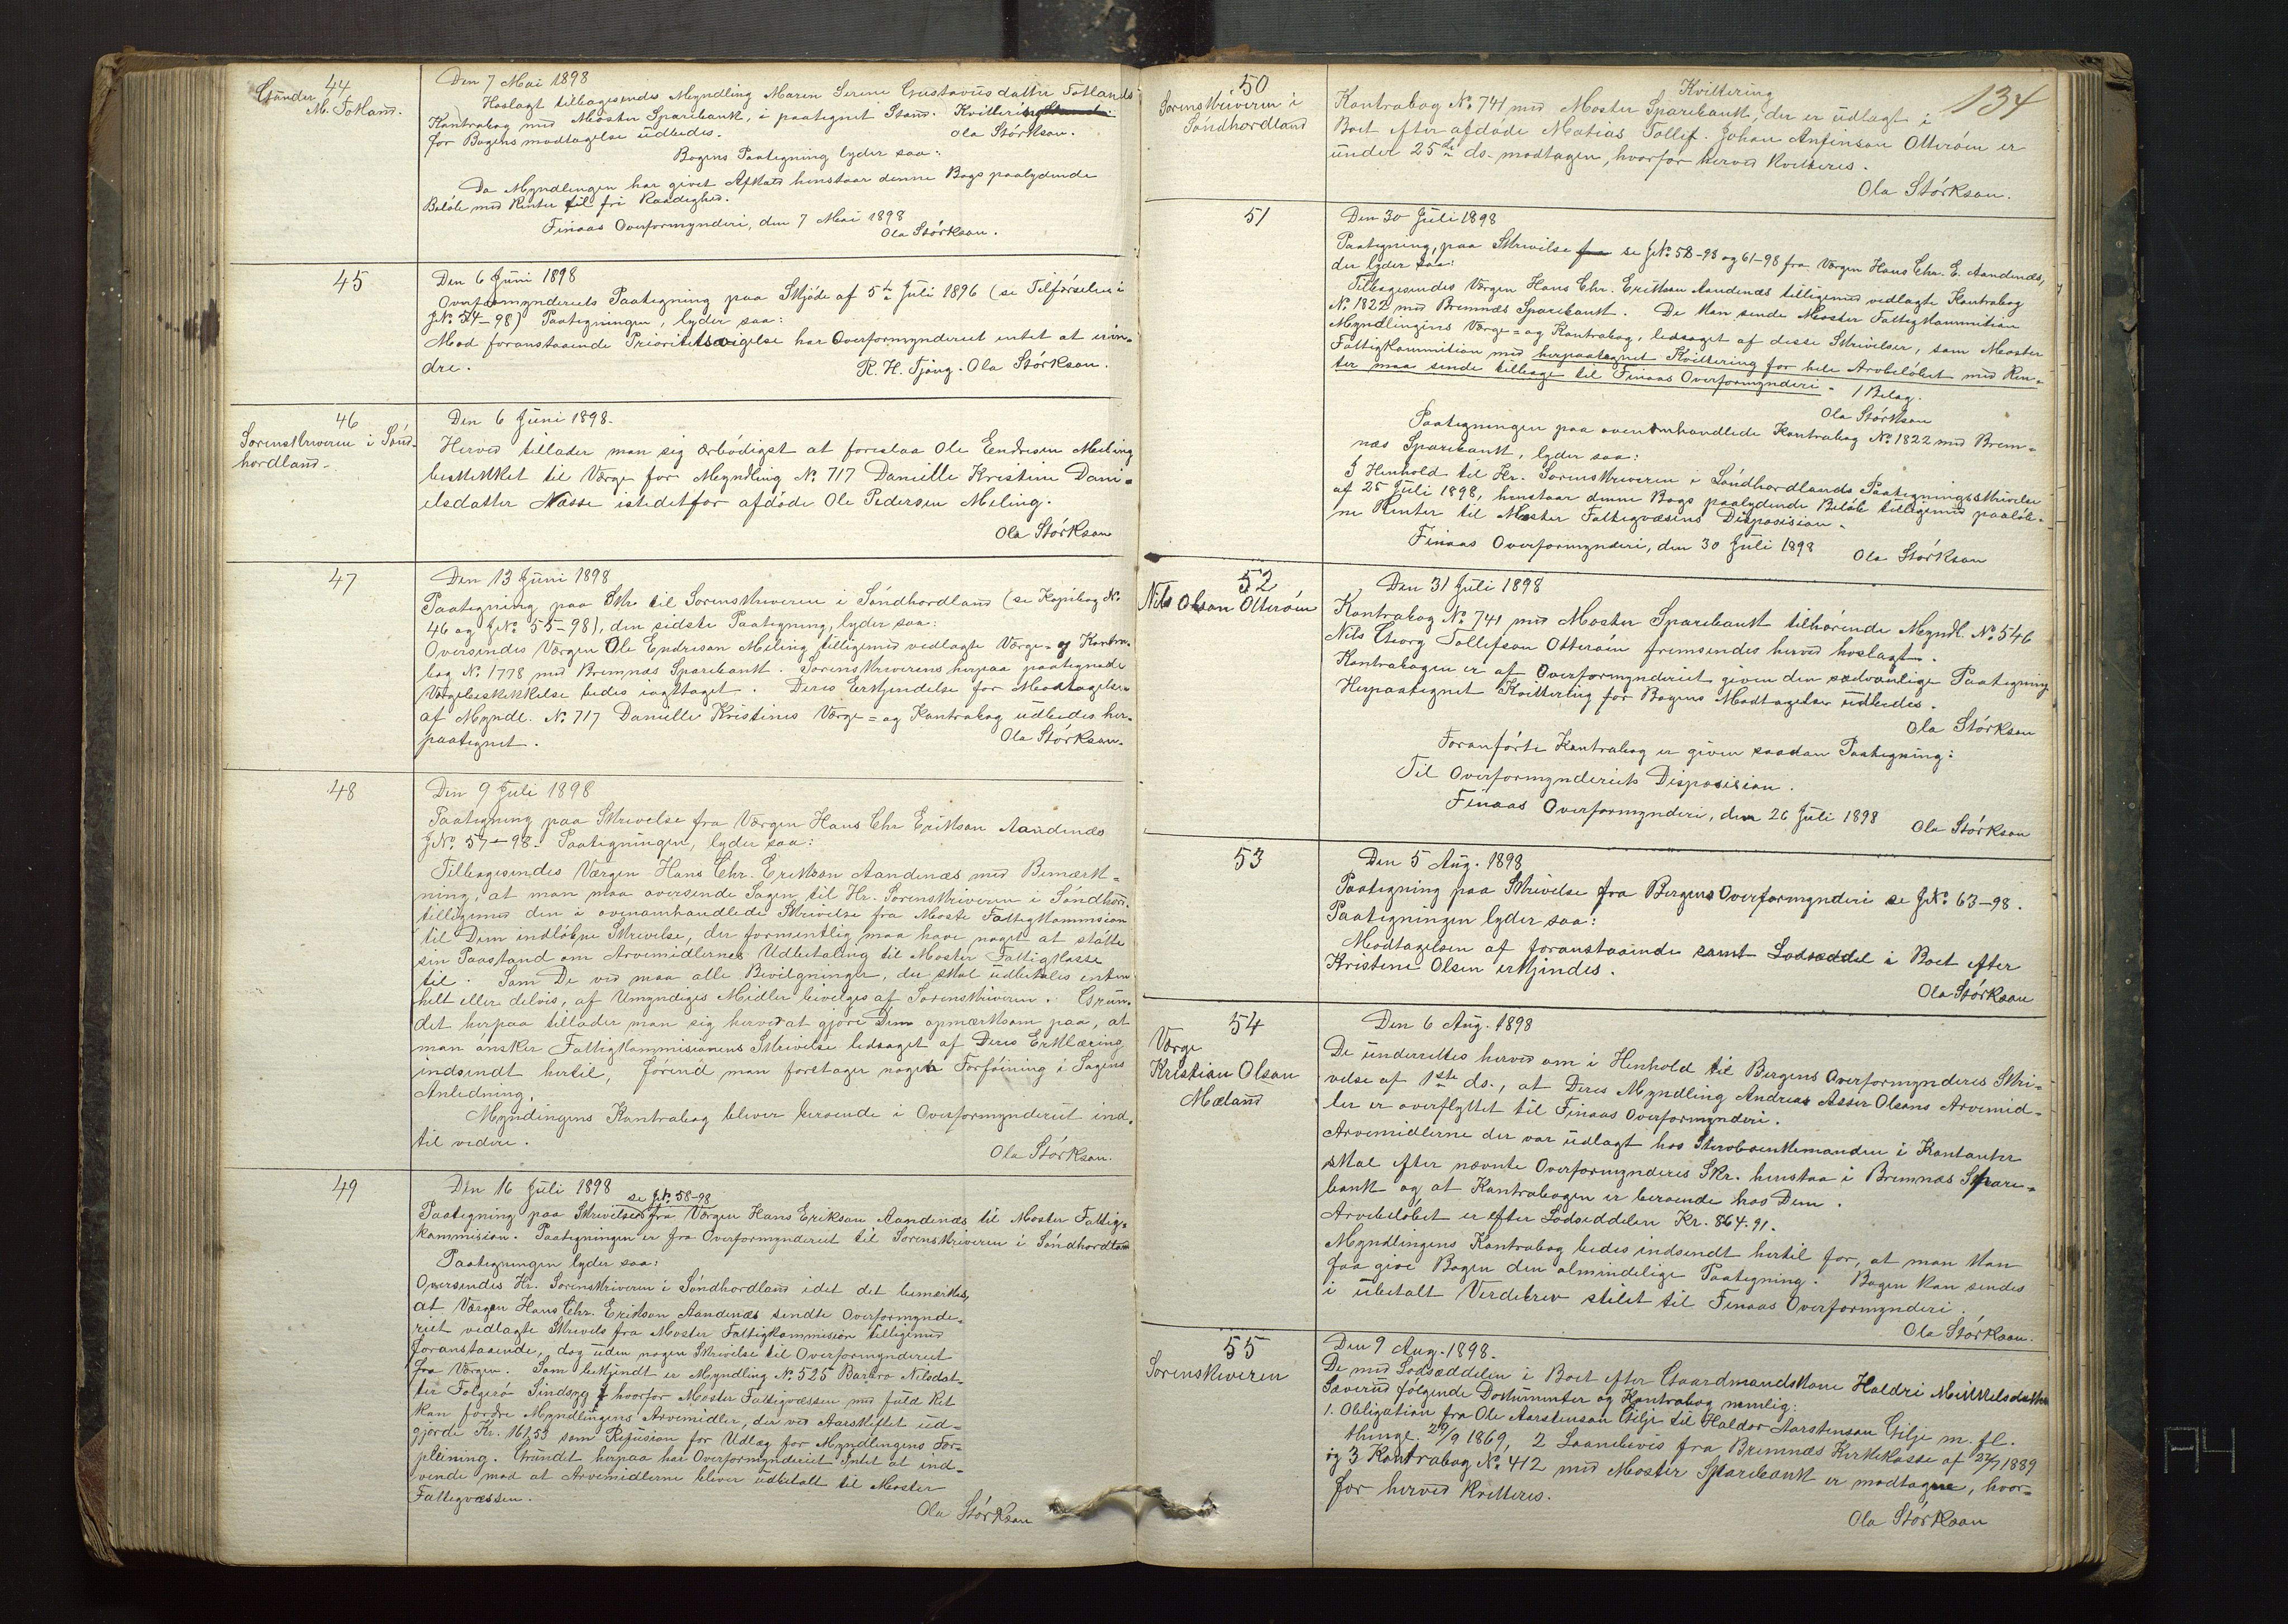 44
Gunder
M. Totland.
Den 7 Mai 1898
Hoslagt tilbagesendes Myndling Maren Serine Gustavusdatter Totlands
Kontrabog med Moster Sparebank, i paategnet Stand. Kvittering
for Bogens modtagelse udbedes.
Ola Störkson.
Bogens Paategning lyder saa:
Da Myndlingen har givet Afkald henstaar denne Bogs paalydende
Belöb med Renter til fri Raadighed.
Finaas Overformynderi, den 7 Mai 1898
Ola Störkson.
45
Den 6 Juni 1898
Overformynderiets Paategning paa Skjöde af 5te Juli 1896 (se Tilförselen i
JNo 54-98) Paategningen, lyder saa:
Mod foranstaaende Prioritetsvigelse har Overformynderiet intet at erin-
dre.
R. H. Tjong. Ola Störkson.
46
Sorenskriveren i Sönd-
hordland-
Den 6 Juni 1898.
Herved tillader man sig ærbödigst at foreslaa Ole Endresen Meling
beskikket til Værge for Myndling No 717 Danielle Kristine Dani-
elsdatter Næsse istedetfor afdöde Ole Pedersen Meling.
Ola Störkson
47
Den 13 Juni 1898
Paategning paa Skr. til Sorenskriveren i Söndhordland (se Kopibog No
46 og JNo 55-98), den sidste Paategning, lyder saa:
Oversendes Værgen Ole Endresen Meling tilligemed vedlagte Værge- og Kontra-
bog No 1778 med Bremnæs Sparebank. Sorenskriverens herpaa paategnede
Værgebeskikkelse bedes iagttaget. Deres Erkjendelse for Modtagelsen
af Myndl. No 717 Danielle Kristines Værge= og Kontrabog udbedes her-
paategnet.
Ola Störkson.
48
Den 9 Juli 1898
Paategning paa Skrivelse fra Værgen Hans Chr Erikson Aandenæs
JNo 57-98. Paategningen, lyder saa:
Tilbagesendes Værgen Hans Chr. Erikson Aandenæs med Bemærk-
ning, at man maa oversende Sagen til Hr. Sorenskriveren i Söndhord.
tilligemed den i ovenomhandlede Skrivelse fra Moste Fattigkommision
til Dem indlöbne Skrivelse, der formentlig maa have noget at stötte
sin Paastand om Arvemidlernes Udbetaling til Moster Fattigkasse
til. Som De ved maa alle Bevilgninger, der skal udbetales enten
helt eller delvis, af Umyndiges Midler bevilges af Sorenskriveren. Grun-
det herpaa tillader man sig herved at gjöre Dem opmærksom paa, at
man ønsker Fattigkommisionens Skrivelse ledsaget af Deres Erklæring
indsendt hertil, förend man foretager nogen Forföining i Sagens
Anledning.
Myndingens Kontrabog bliver beroende i Overformynderiet ind-
til videre.
Ola Störkson.
49
Den 16 Juli 1898
se JNo 58-98
Paategning paa Skrivelsen fra Værgen Hans Erikson Aandenæs til Moster Fattig-
kommision. Paategningen er fra Overformynderiet til Sorenskriveren i Söndhordland
Paategningen lyder saa:
Oversendes Hr. Sorenskriveren i Söndhordland idet det bemerkes,
at Værgen Hans Chr. Erikson Aandenæs sendte Overformynde-
riet vedlagte Skrivels fra Moster Fattigkommision tilligemed
foranstaaende, dog uden nogen Skrivelse til Overformynderiet
fra Værgen. Som bekjendt er Myndling No 525 Barbro Nilsdat-
ter Folgerö Sindssyg hvorfor Moster Fattigvæssen med fuld Ret
kan fordre Myndlingens Arvemidler, der ved Aarskiftet ud-
gjorde Kr. 161,53 som Refusion for Udlæg for Myndlingens For-
pleining. Grundet herpaa har Overformynderiet Intet at ind-
vende mod at Arvemidlerne bliver udbetalt til Moster
Fattigvæssen.
Ola Störkson
134
50
Sorenskriveren i
Söndhordland
Kvittering
Kontrabog No 741 med Moster Sparebank, der er udlagt i
Boet efter afdöde Matias Tollef. Johan Anfinsön Otteröen er
under 25de ds. modtagen, hvorfor herved kvitteres.
Ola Störkson.
51
Den 30 Juli 1898
Paategning, paa Skrivelse fra se JNo 58-98 og 61-98 fra Værgen Hans Chr. E. Aandenæs,
der lyder saa:
Tilbagesendes Værgen Hans Chr. Erikson Aandenæs tilligemed vedlagte Kontrabog
No 1822 med Bremnæs Sparebank. De kan sende Moster Fattigkommition
Myndlingens Værge= og Kontrabog, ledsaget af disse Skrivelser, som Moster
Fattigkommition med herpaategnet Kvittering for hele Arvebelöbet med Ren-
ter maa sende tilbage til Finaas Overformynderi. 1 Bilag.
Ola Störkson
Paategningen paa ovenomhandlede Kontrabog No 1822 med Brem-
næs Sparebank, lyder saa:
I Henhold til Hr. Sorenskriveren i Söndhordlands Paategningsskrivelse
af 25 Juli 1898, henstaar denne Bogs paalydende Belöb tilligemed paalöb-
ne Renter til Moster Fattigvæsens Disposision.
Finaas Overformynderi, den 30 Juli 1898
Ola Störkson
52
Nils Olson Otteröen
Den 31 Juli 1898
Kontrabog No 741 med Moster Sparebank tilhörende Myndl. No 546
Nils Georg Tollefson Otteröen fremsendes herved hoslagt.
Kontrabogen er af Overformynderiet given den sædvanlige Paategning
Herpaategnet Kvittering for Bogens Modtagelse udbedes.
Ola Störkson
Foranförte Kontrabog er given saadan Paategning:
Til Overformynderiets Disposision.
Finaas Overformynderi, den 26 Juli 1898
Ola Störkson
53
Den 5 Aug. 1898
Paategning paa Skrivelse fra Bergens Overformynderi se JNo 63-98.
Paategningen lyder saa:
Modtagelsen af foranstaaende samt Lodseddel i Boet efter
Kristene Olsen erkjendes.
Ola Störkson
54
Værge
Kristian Olson
Mæland
Den 6 Aug. 1898
De underrettes herved om i Henhold til Bergens Overformynderis Skri-
velse af 1ste ds., at Deres Myndling Andreas Asser Olsons Arvemid-
ler er overflyttet til Finaas Overformynderi.
Arvemidlerne der var udlagt hos Sterbsenkemanden i Kontanter
skal efter nævnte Overformynderis Skr. henstaa i Bremnæs Spare-
bank og at Kontrabogen er beroende hos Dem.
Arvebelöbet er efter Lodseddelen Kr. 864.91.
Myndlingens Kontrabog bedes indsendt hertil for, at man kan
faa give Bogen den almindelige Paategning. Bogen kan sendes
i ubetalt Verdibrev stilet til Finaas Overformynderi.
Ola Störkson.
55
Sorenskriveren
Den 9 Aug. 1898.
De med Lodseddelen i Boet efter Gaardmandskone Haldri Mikkelsdatter
Sæverud fölgende Dokumenter og Kontrabog nemlig:
1. Obligation fra Ole Aarstenson Gilje til Haldor Aarstenson Gilje m. fl.
thingl. 29/9 1869, 2 Laanebevis fra Bremnæs Kirkekasse af 22/7 1889
og 3 Kontrabog No 412 med Moster Sparebank er modtagne, hvor-
for herved kvitteres.
Ola Störkson